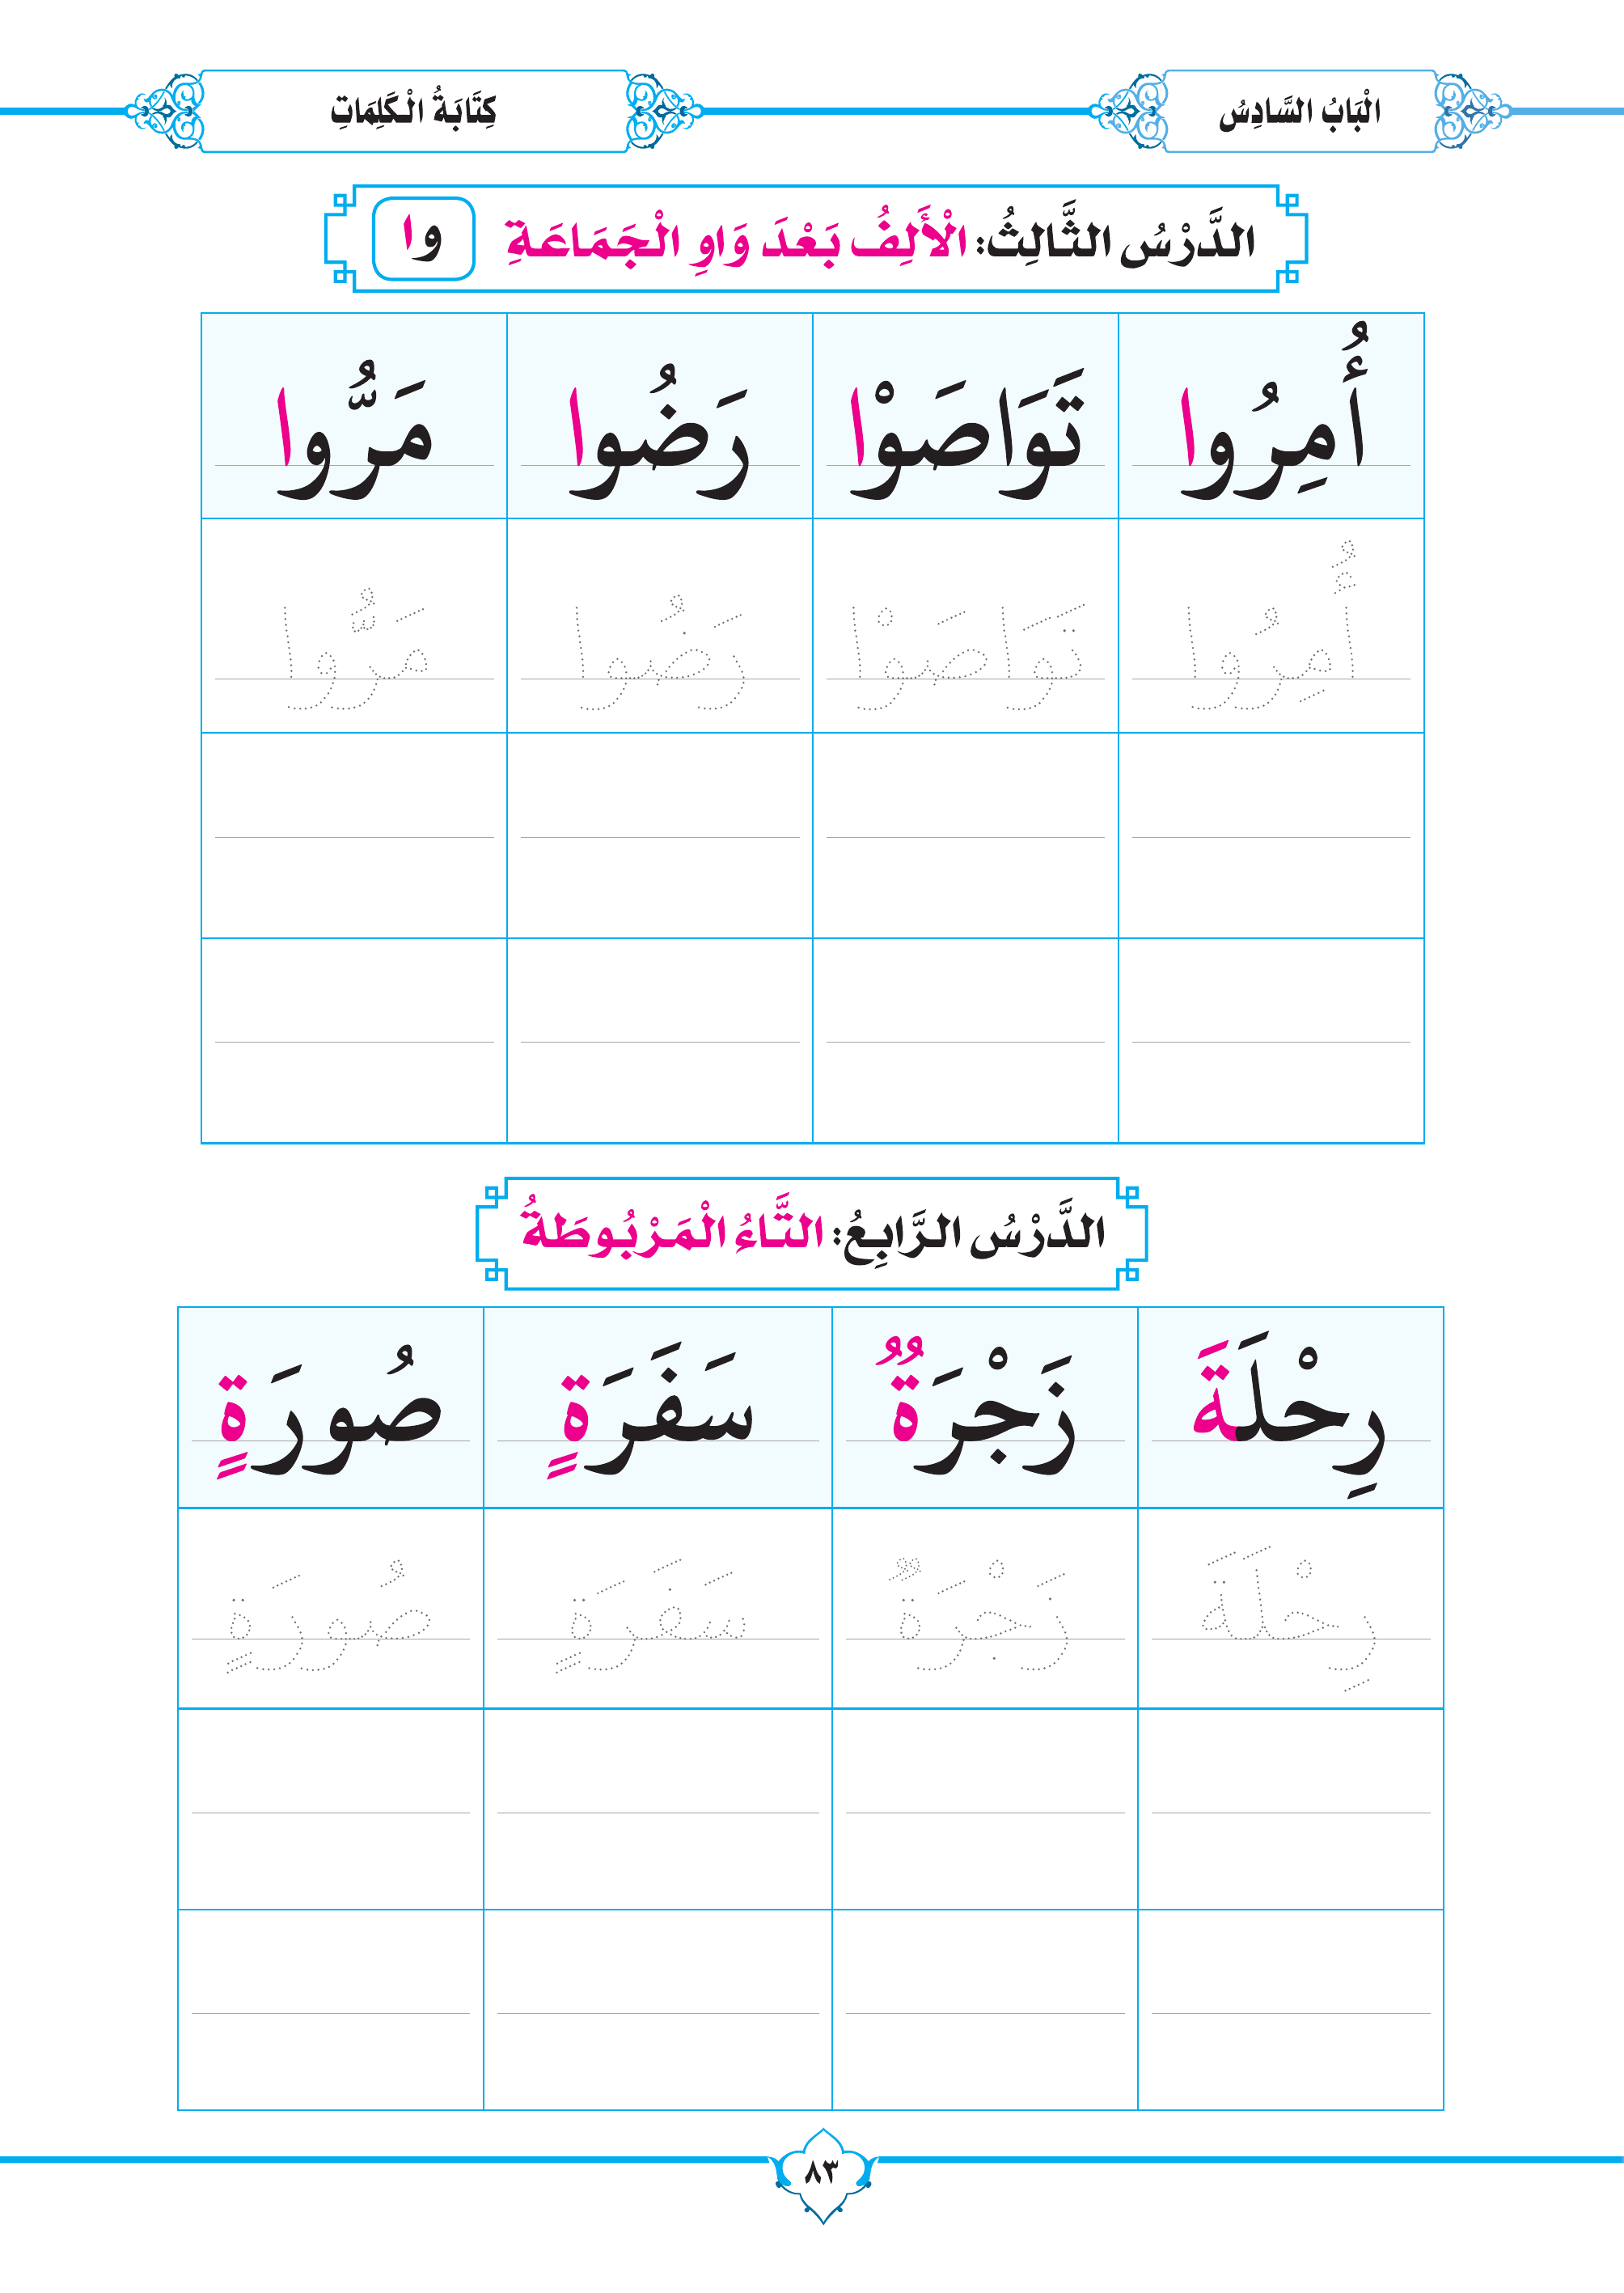 الْبَابُ السَّادِسُ
كِتَابَةُ الْكَلِمَاتِ
الدَّرْسُ الثَّالِثُ: الْأَلِفُ بَعْدَ وَاوِ الْجَمَاعَةِ وا
أُمِرُوا تَوَاصَوْا رَضُوا مَرُّوا
أُمِرُوا تَوَاصَوْا رَضُوا مَرُّوا
الدَّرْسُ الرَّابِعُ: التَّاءُ الْمَرْبُوطَةُ
رِحْلَةَ زَجْرَةٌ سَفَرَةٍ صُورَةٍ
رِحْلَةَ زَجْرَةٌ سَفَرَةٍ صُورَةٍ
٨٣